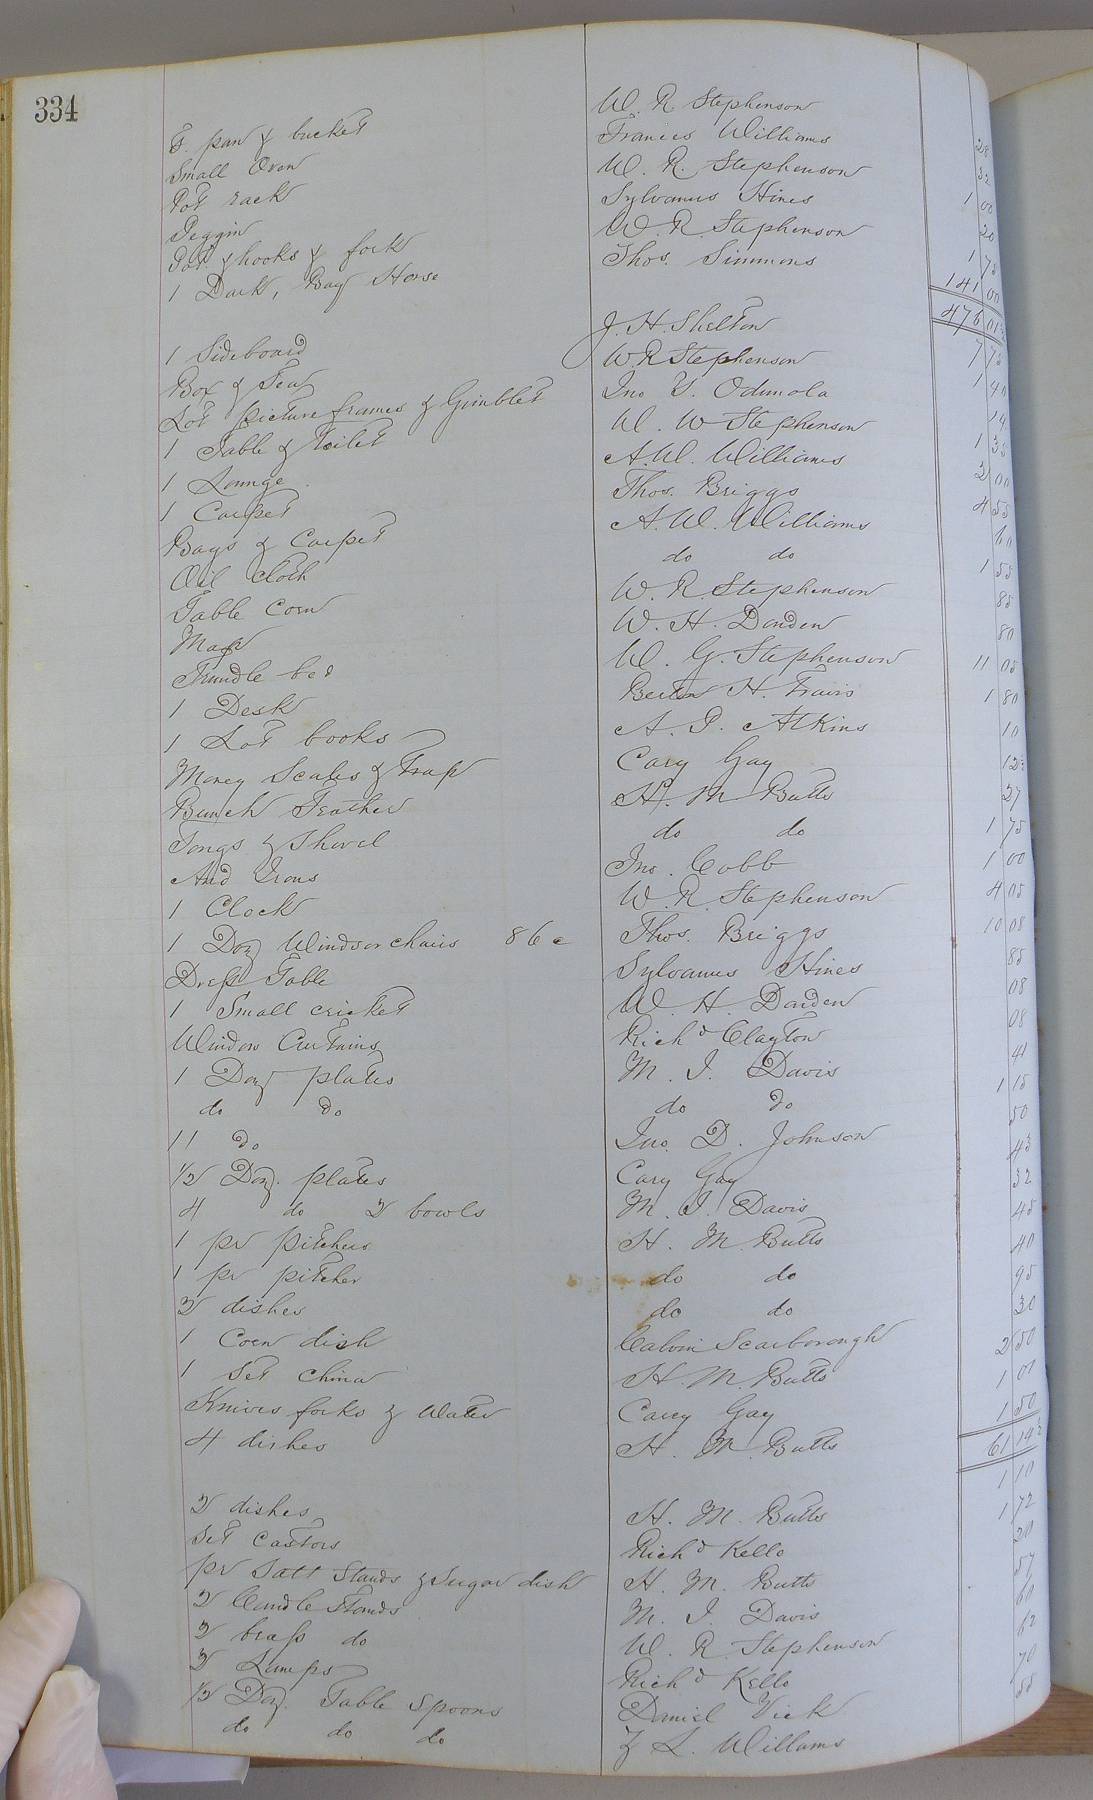 334
F. pan & bucket W. R Stephenson 28
Small Oven Frances Williams 32
Pot rack W. R. Stephenson 1 00
Peggin Sylvanus Hines 20
Pot & hooks & fork W. R. Stephenson 1 75
1 Dark, Bay Horse Thos. Simmons 141 00
476 01½
1 Sideboard J. H. Shelton 7 75
Box & Tea W R Stephenson 1 40
Lot picture frames & Gimblet Jno Y. 14
1 Table & toilet W. W Stephenson 1 35
1 Lounge A.W. Williams 2 00
1 Carpet Thos. Briggs 4 55
Bags & Carpet A.W. Williams 60
Oil cloth do do 1 55
Table Corn W. R. Stephenson 85
Map W. H. Darden 80
Trundle bed W. G. Stephenson 11 05
1 Desk H. Travis 1 80
1 Lot books A. P. Atkins 10
Money Scales & Trap Cary Gay 12½
Bunch Feather H. M Butts 27
Tongs & Shovel do do 1 75
And Irons Jno. Cobb 1 00
1 Clock W. R. Stephenson 4 05
1 Doz Windsor chairs 86 c Thos. Briggs 10 08
Dress Table Sylvanus Hines 85
1 Small cricket W. H. Darden 08
Window Curtains Richd Clayton 08
1 Doz plates M. I. Davis 41
do do do do 1 15
11 do Jno. D. Johnson 50
½ Doz. plates Cary Gay 43
4 do 2 bowls M. I. Davis 32
1 pr pitchers H. M. Butts 45
1 pr pitcher do do 40
2 dishes do do 95
1 Corn dish Calvin Scarborough 30
1 Set china H. M. Butts 2 50
Knives forks & Water Carry Gay 1 01
4 dishes H. M. Butts 1 50
61 14½
2 dishes H. M. Butts 1 10
Set Castors Richd Kello 1 72
pr Satt Stands & Sugar dish H. M. Butts 20
2 Candle Stands M. I. Davis 57
2 brass do W. R. Stephenson 60
2 Lamps Richd Kello 62
½ Doz. Table Spoons Daniel Vick 70
do do do Z L. Willams 55